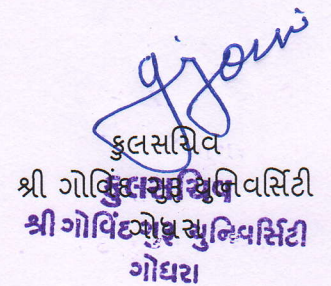 કુલસચિવ
શ્રી ગોવિંદ ગુરૂ યુનિવર્સિટી
કુલસચિવ
ગોધરા
શ્રી ગોવિંદ ગુરૂ યુનિવર્સિટી
ગોધરા